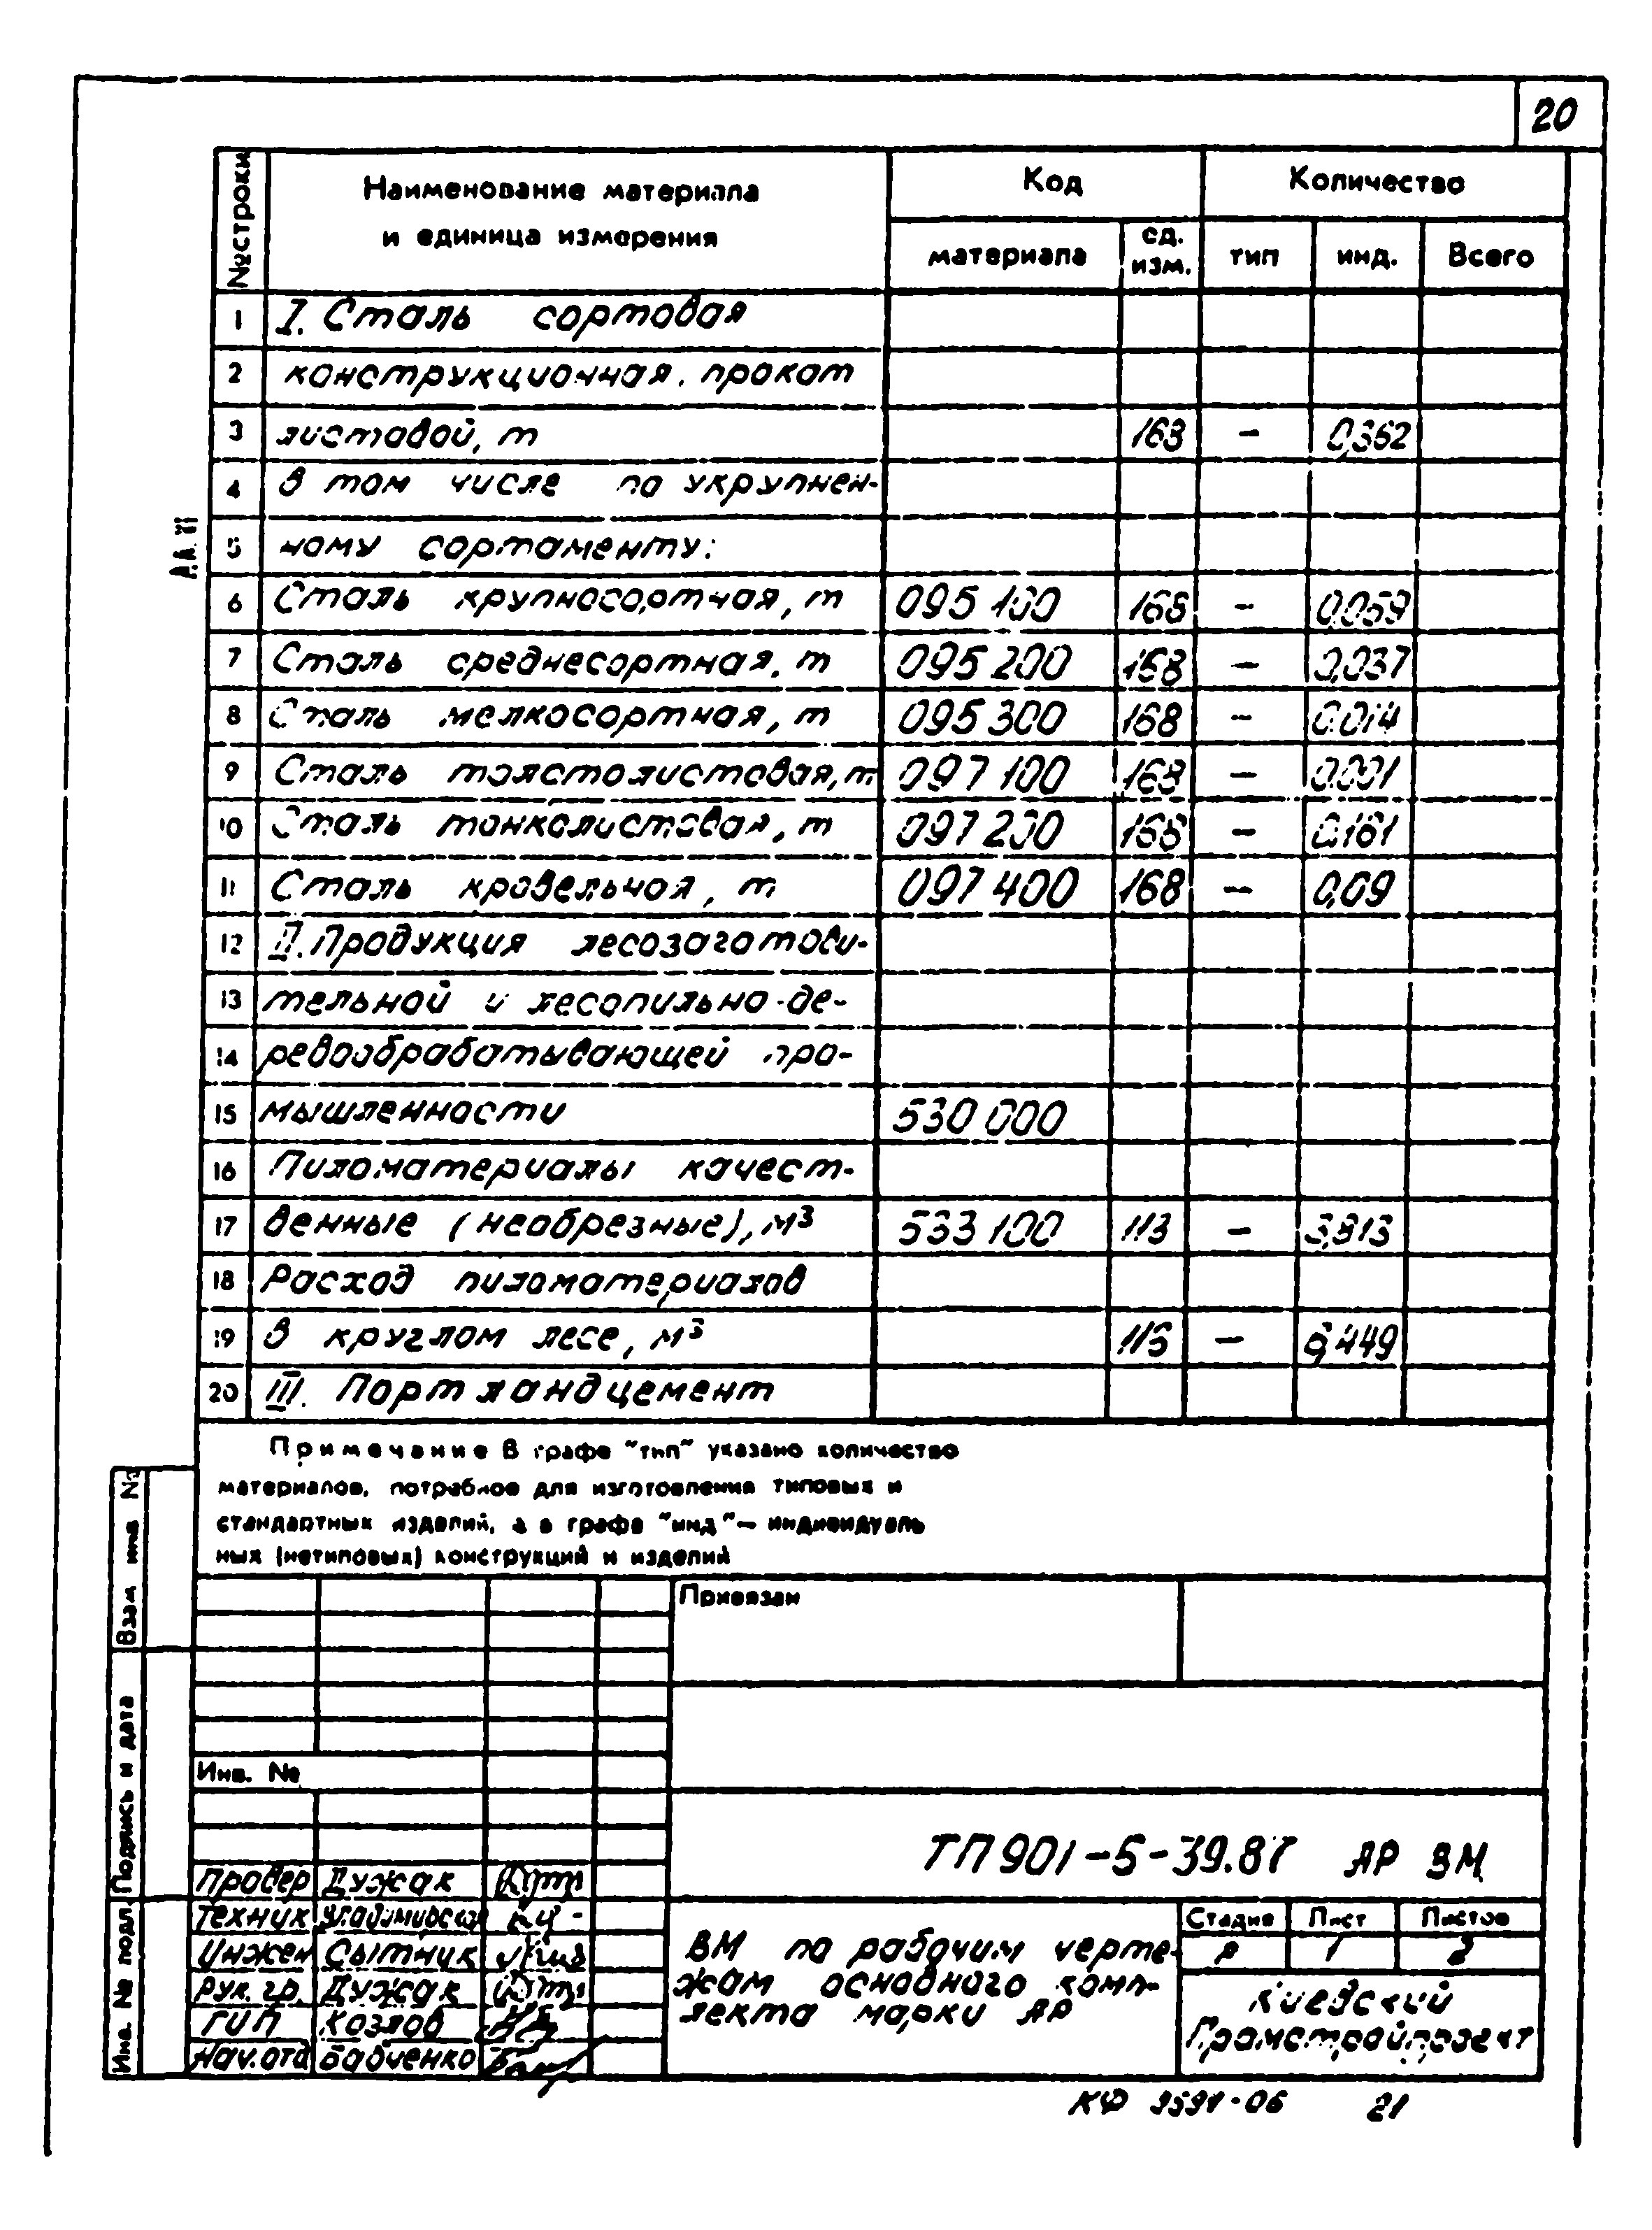 20
№ строки
Наименование материала
и единица измерения
Код
Количество
материала
ед. изм.
тип
инд.
Всего
1 I. Сталь сортовая
2 конструкционная, прокат
3 листовой, т 168 – 0,362
4 в том числе по укрупнен-
5 ному сортаменту:
6 Сталь крупносортная, т 095 100 168 – 0,059
7 Сталь среднесортная, т 095 200 168 – 0,037
8 Сталь мелкосортная, т 095 300 168 – 0,014
9 Сталь толстолистовая, т 097 100 168 – 0,001
10 Сталь тонколистовая, т 097 200 168 – 0,161
11 Сталь кровельная, т 097 400 168 – 0,09
12 II. Продукция лесозаготови-
13 тельной и лесопильно-де-
14 ревообрабатывающей про-
15 мышленности 530 000
16 Пиломатериалы качест-
17 венные (необрезные), м³ 533 100 113 – 3,813
18 Расход пиломатериалов
19 в круглом лесе, м³ 113 – 6,449
20 III. Портландцемент
Примечание В графе "тип" указано количество
материалов, потребное для изготовления типовых и
стандартных изделий, а в графе "инд" – индивидуаль
ных (нетиповых) конструкций и изделий
Взам инв №
Подпись и дата
Инв. № подл
Привязан
Инв. №
ТП 901-5-39.87 АР ВМ
Провер Дужак
Техник
Инжен Сытник
Рук. гр. Дужак
ГИП Козлов
Нач.отд Бабченко
ВМ по рабочим черте-
жам основного комп-
лекта марки АР
Стадия Лист Листов
Р 1 2
Киевский
Промстройпроект
КФ 06 21